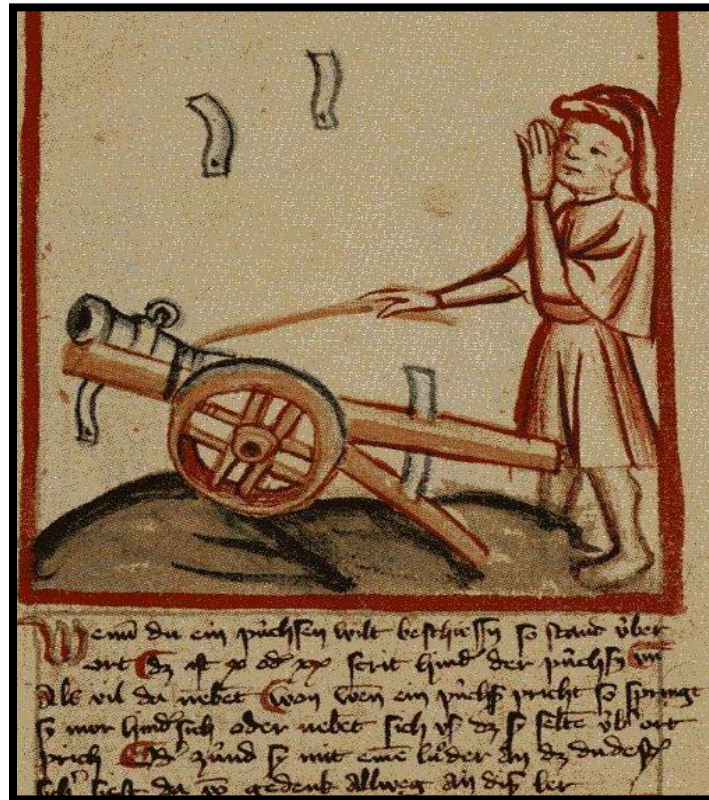 Wenn du ein püchsen wilt beschiessn so stand über
ort dz ist x od xx scrit hind der püchsn vn
Als vil da nebet won wen ein püchs pricht so springt
sy mer hind sich oder nebet sich vs dz sy selten vb ort
prich zünd sy mit eine luder an dz du dest
gedenk Allweg An dis ler